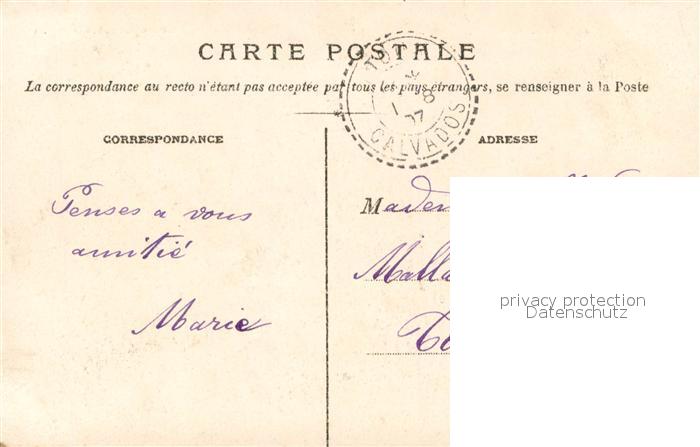 CARTE POSTALE
La correspondance au recto n'étant pas acceptée par tous les pays étrangers, se renseigner à la Poste
CORRESPONDANCE
ADRESSE
1 8
07
CALVADOS
Penses a vous
amitié
Marie
privacy protection
Datenschutz